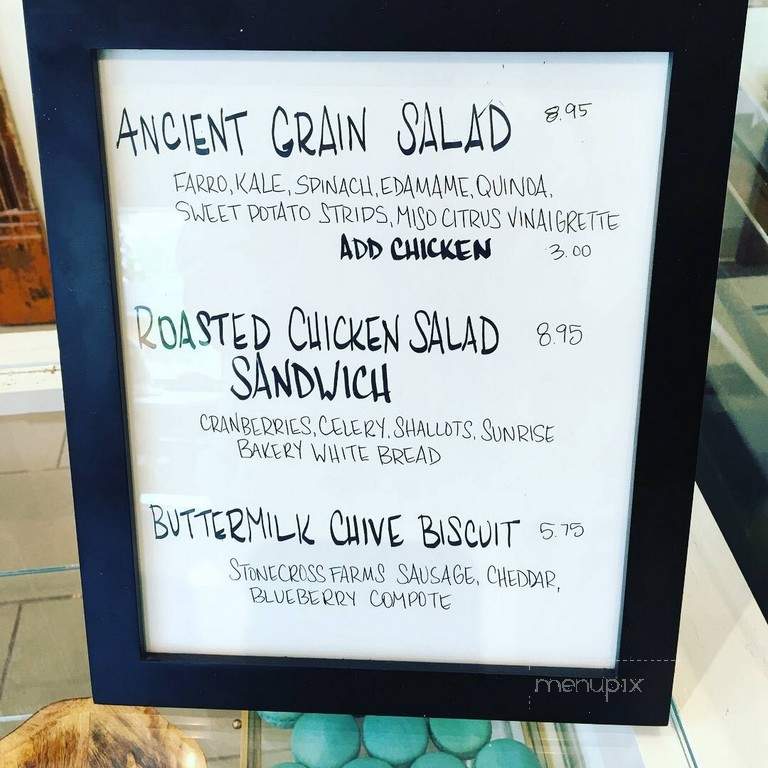 ANCIENT GRAIN SALAD 8.95
FARRO, KALE, SPINACH, EDAMAME, QUINOA,
SWEET POTATO STRIPS, MISO CITRUS VINAIGRETTE
ADD CHICKEN 3.00
ROASTED CHICKEN SALAD 8.95
SANDWICH
CRANBERRIES, CELERY, SHALLOTS, SUNRISE
BAKERY WHITE BREAD
BUTTERMILK CHIVE BISCUIT 5.75
STONECROSS FARMS SAUSAGE, CHEDDAR,
BLUEBERRY COMPOTE
menupix